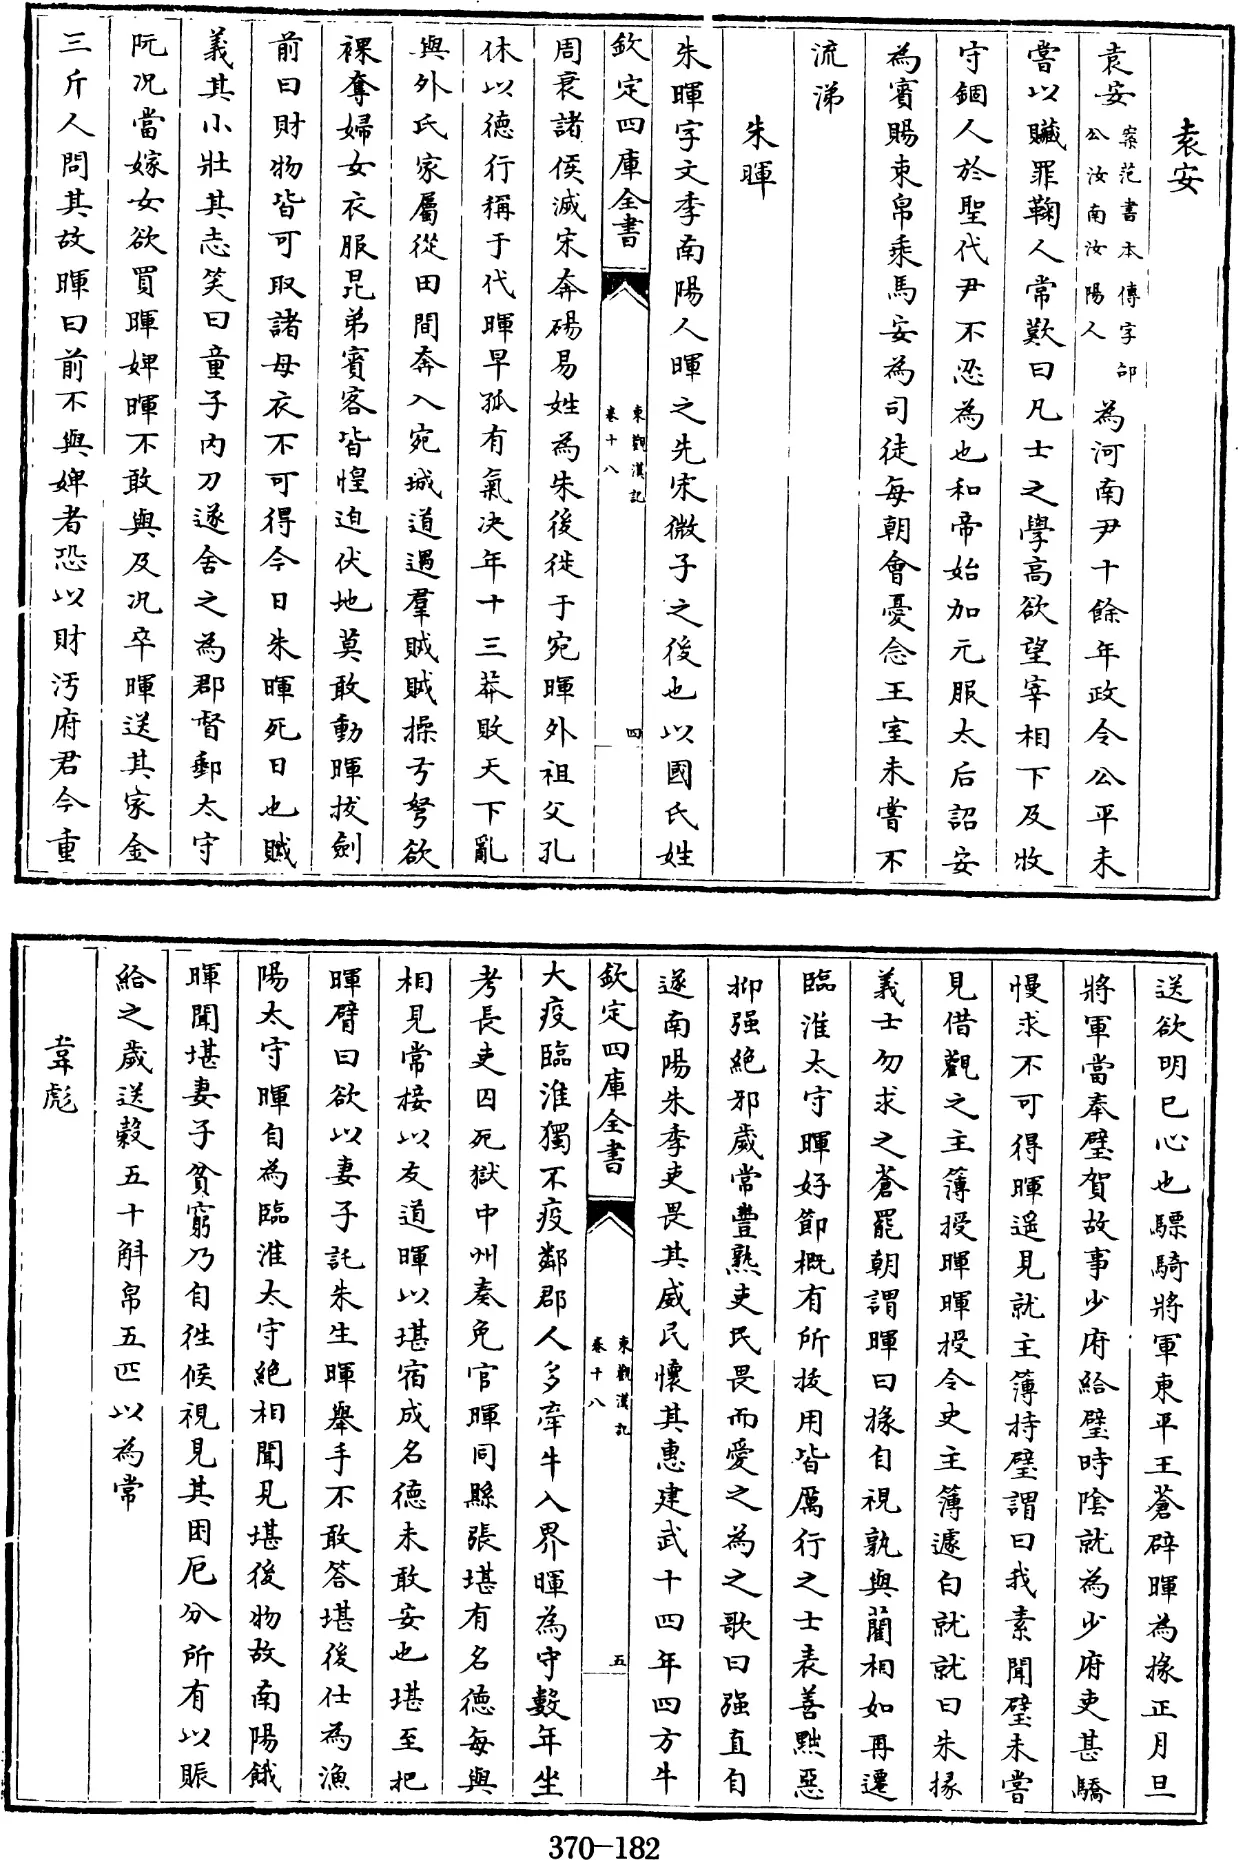 袁安
袁安案范書本傳字邵公汝南汝陽人為河南尹十餘年政令公平未
嘗以贓罪鞠人常歎曰凡士之學高欲望宰相下及牧
守錮人於聖代尹不忍為也和帝始加元服太后詔安
為賓賜束帛乘馬安為司徒每朝會憂念王室未嘗不
流涕
朱暉
朱暉字文季南陽人暉之先宋微子之後也以國氏姓
欽定四庫全書
東觀漢記
卷十八
四
周衰諸侯滅宋奔碭易姓為朱後徙于宛暉外祖父孔
休以德行稱于代暉早孤有氣決年十三莽敗天下亂
與外氏家屬從田間奔入宛城道遇羣賊賊操弓弩欲
裸奪婦女衣服昆弟賓客皆惶迫伏地莫敢動暉拔劍
前曰財物皆可取諸母衣不可得今日朱暉死日也賊
義其小壯其志笑曰童子內刀遂舍之為郡督郵太守
阮况當嫁女欲買暉婢暉不敢與及况卒暉送其家金
三斤人問其故暉曰前不與婢者恐以財污府君今重
送欲明己心也驃騎將軍東平王蒼辟暉為掾正月旦
將軍當奉璧賀故事少府給璧時陰就為少府吏甚驕
慢求不可得暉遥見就主簿持璧謂曰我素聞璧未嘗
見借觀之主簿授暉暉授令史主簿遽白就就曰朱掾
義士勿求之蒼罷朝謂暉曰掾自視孰與藺相如再遷
臨淮太守暉好節概有所拔用皆厲行之士表善黜惡
抑强絕邪歲常豐熟吏民畏而愛之為之歌曰强直自
遂南陽朱季吏畏其威民懷其惠建武十四年四方牛
欽定四庫全書
東觀漢記
卷十八
五
大疫臨淮獨不疫鄰郡人多牽牛入界暉為守數年坐
考長吏囚死獄中州奏免官暉同縣張堪有名德每與
相見常接以友道暉以堪宿成名德未敢安也堪至把
暉臂曰欲以妻子託朱生暉舉手不敢答堪後仕為漁
陽太守暉自為臨淮太守絕相聞見堪後物故南陽餓
暉聞堪妻子貧窮乃自往候視見其困厄分所有以賑
給之歲送穀五十斛帛五匹以為常
韋彪
370-182